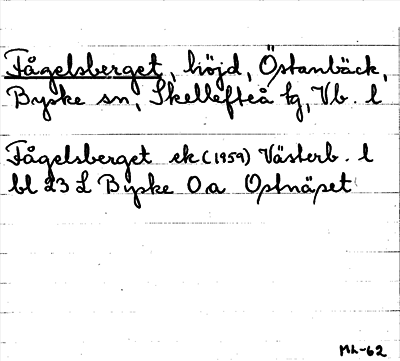 Fågelsberget, höjd, Östanbäck,
Byske sn, Skellefteå tg, Vb. l
Fågelsberget ek (1959) Västerb. l
bl 23 L Byske O.a Ostnäset
ML-62